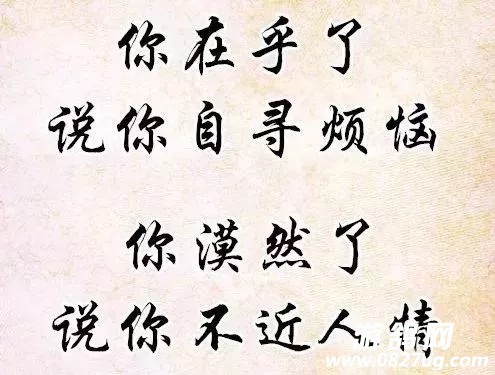 你在乎了
说你自寻烦恼
你漠然了
说你不近人情
www.0827ug.com